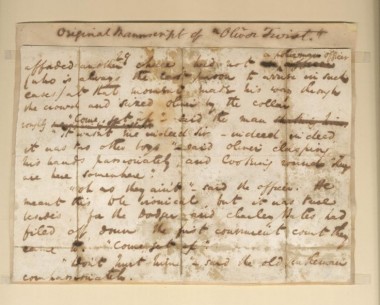 Original Manuscript of "Oliver Twist."
a police officer
afforded another chase had not
(who is always the last person to arrive in such
cases) at that moment made his way through
the crowd and seized Oliver by the collar
roughly said the man
"It wasn't me indeed Sir - indeed indeed
it was two other boys" said Oliver clasping
his hands passionately and looking round "they
are here somewhere"
"Oh no they ain't" said the officer. He
meant this to be ironical but it was true
besides for the Dodger and Charley Bates had
filed off down the first convenient court they
came to. "Come get up"
"Don't hurt him" said the old gentleman
compassionately.